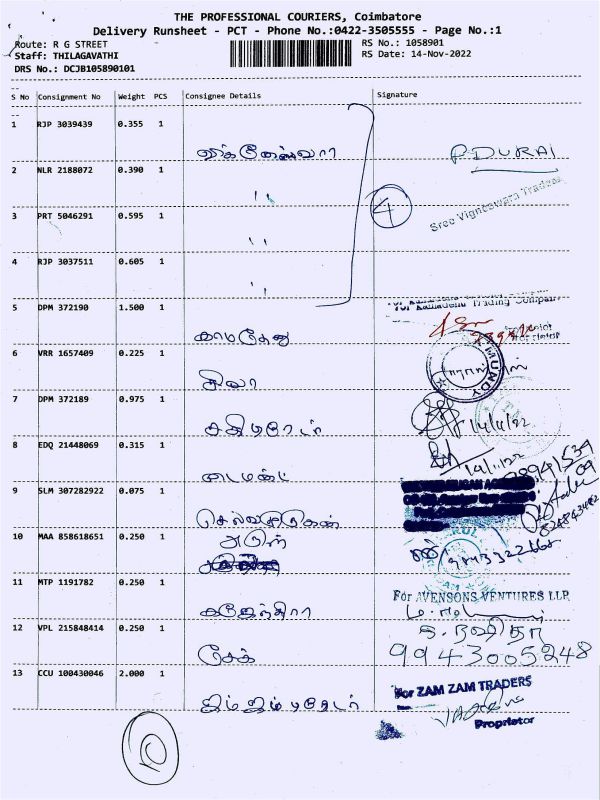 THE PROFESSIONAL COURIERS, Coimbatore
Delivery Runsheet - PCT - Phone No.:0422-3505555 - Page No.:1
Route: R G STREET
RS No.: 1058901
Staff: THILAGAVATHI
RS Date: 14-Nov-2022
DRS No.: DCJB105890101
S No Consignment No Weight PCS Consignee Details Signature
1 RJP 3039439 0.355 1 P.DURAI
2 NLR 2188072 0.390 1 ,,
4
Sree Vigneswara Traders
3 PRT 5046291 0.595 1 ,,
4 RJP 3037511 0.605 1 ,,
5 DPM 372190 1.500 1 காமதேனு
For Kamadenu Trading Company
6 VRR 1657409 0.225 1 சிவா
MUNDY
7 DPM 372189 0.975 1
14/11/22
8 EDQ 21448069 0.315 1 டைமண்ட்
14/11/22
9 SLM 307282922 0.075 1 செல்வமுருகன்
10 MAA 858618651 0.250 1 அருள்
11 MTP 1191782 0.250 1 கஜேந்திரா
For AVENSONS VENTURES LLP
12 VPL 215848414 0.250 1 சேக்
9943005248
13 CCU 100430046 2.000 1 ஜம் ஜம் டிரேடர்
For ZAM ZAM TRADERS
Proprietor
10